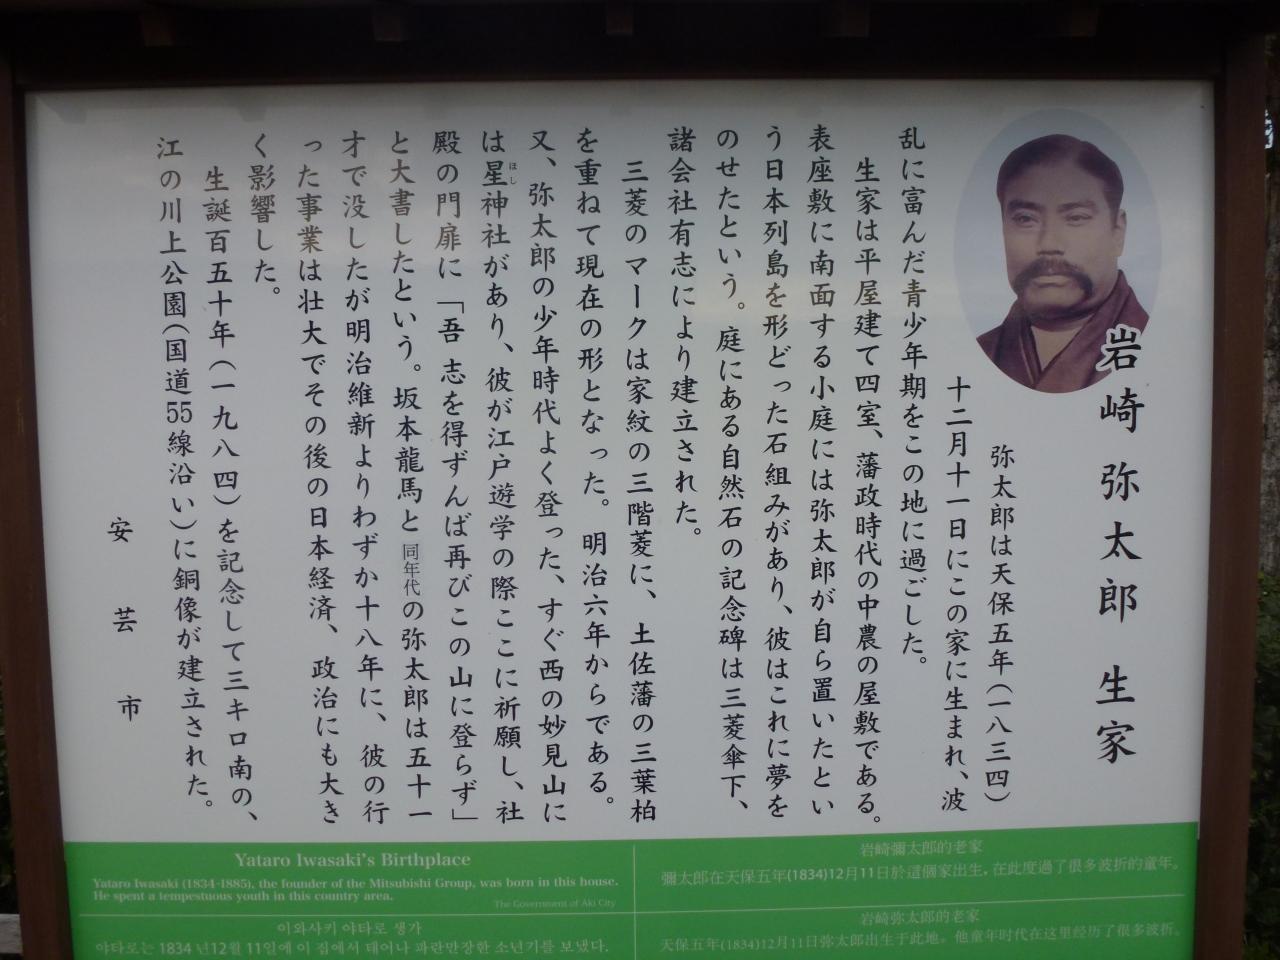 岩崎 弥太郎 生家
弥太郎は天保五年(一八三四)
十二月十一日にこの家に生まれ、波
乱に富んだ青少年期をこの地に過ごした。
生家は平屋建て四室、藩政時代の中農の屋敷である。
表座敷に南面する小庭には弥太郎が自ら置いたとい
う日本列島を形どった石組みがあり、彼はこれに夢を
のせたという。庭にある自然石の記念碑は三菱傘下、
諸会社有志により建立された。
三菱のマークは家紋の三階菱に、土佐藩の三葉柏
を重ねて現在の形となった。明治六年からである。
又、弥太郎の少年時代よく登った、すぐ西の妙見山に
は星神社があり、彼が江戸遊学の際ここに祈願し、社
ほし
殿の門扉に「吾 志を得ずんば再びこの山に登らず」
と大書したという。坂本龍馬と同年代の弥太郎は五十一
才で没したが明治維新よりわずか十八年に、彼の行
った事業は壮大でその後の日本経済、政治にも大き
く影響した。
生誕百五十年(一九八四)を記念して三キロ南の、
江の川上公園(国道55線沿い)に銅像が建立された。
安芸市
Yataro Iwasaki's Birthplace
Yataro Iwasaki (1834-1885), the founder of the Mitsubishi Group, was born in this house.
He spent a tempestuous youth in this country area.
The Government of Aki City
岩崎彌太郎的老家
彌太郎在天保五年(1834)12月11日於這個家出生,在此度過了很多波折的童年。
이와사키 야타로 생가
야타로는 1834 년12월 11일에 이 집에서 태어나 파란만장한 소년기를 보냈다.
岩崎弥太郎的老家
天保五年(1834)12月11日弥太郎出生于此地。他童年时代在这里经历了很多波折。